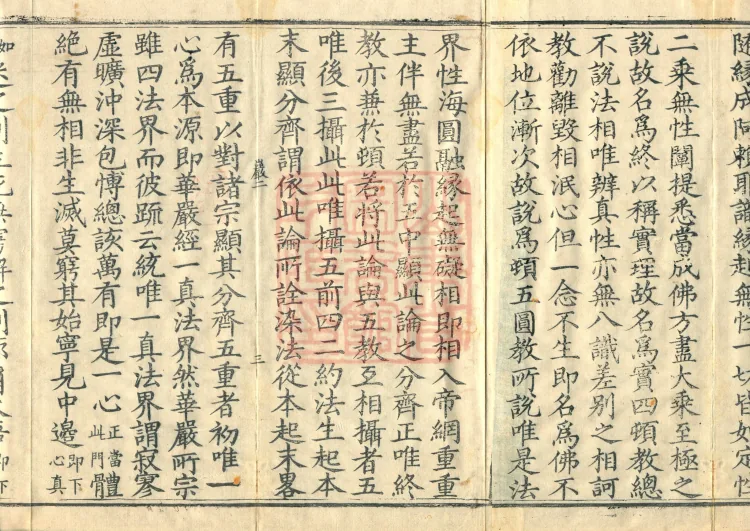 隨縁成阿賴耶識縁起無性一切皆如定性
二乘無性闡提悉當成佛方盡大乘至極之
說故名爲終以稱實理故名爲實四頓教總
不說法相唯辨真性亦無八識差別之相訶
教勸離毀相泯心但一念不生即名爲佛不
依地位漸次故說爲頓五圓教所說唯是法
界性海圓融縁起無礙相即相入帝網重重
主伴無盡若於五中顯此論之分齊正唯終
教亦兼於頓若將此論與五教互相攝者五
唯後三攝此此唯攝五前四二約法生起本
末顯分齊謂依此論所詮染法從本起末畧
三
有五重以對諸宗顯其分齊五重者初唯一
心爲本源即華嚴經一真法界然華嚴所宗
雖四法界而彼䟽云統唯一真法界謂寂寥
虛曠沖深包愽總該萬有即是一心正當此門體即下心真
絶有無相非生滅莫窮其始寧見中邊